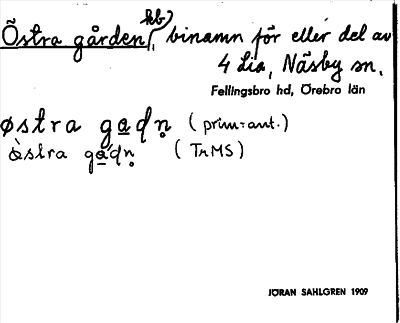 Östra gården, hb) binamn för eller del av
4 Lia, Näsby sn,
Fellingsbro hd, Örebro län
østra ga̲dn̥ (prim.-ant.)
òstra gá̲dn̥ (TrMS)
JÖRAN SAHLGREN 1909